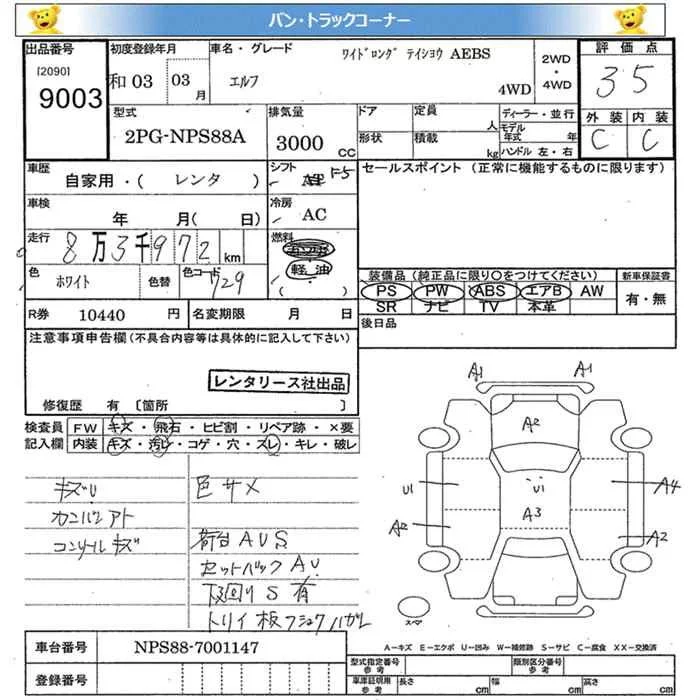 バン・トラックコーナー
出品番号
[2090]
9003
初度登録年月
和03 03 月
車名・グレード
ワイドロング テイショウ AEBS
エルフ
4WD
2WD・4WD
評価点
3.5
外装 内装
C C
型式
2PG-NPS88A
排気量
3000 CC
ドア
定員
人
形状
積載
kg
ディーラー・並行
モデル年式 年
ハンドル 左・右
車歴
自家用・( レンタ )
シフト
F5
セールスポイント (正常に機能するものに限ります)
車検
年 月( 日)
冷房
AC
走行
8万3千972 km
燃料
軽油
( )
色
ホワイト
色替
色コード
729
装備品 (純正品に限り〇をつけてください)
PS PW ABS エアB AW
SR ナビ TV 本革
新車保証書
有・無
R券 10440 円
名変期限 月 日
後日品
注意事項申告欄(不具合内容等は具体的に記入して下さい)
レンタリース社出品
修復歴 有 [箇所 ]
検査員記入欄
FW キズ・飛石・ヒビ割・リペア跡・×要
内装 キズ・汚レ・コゲ・穴・スレ・キレ・破レ
キズU
カンバンアト
コンソールキズ
色サメ
荷台AUS
セットバックAU
下回りS有
トリイ板フショクハガレ
A1 A1
A2
U1 U1 A4
A3
A2 A2
スペア
A-キズ E-エクボ U-凹み W-補修跡 S-サビ C-腐食 XX-交換済
車台番号
NPS88-7001147
登録番号
型式指定番号 参考
類別区分番号 参考
車庫証明用 参考
長さ cm
幅 cm
高さ cm